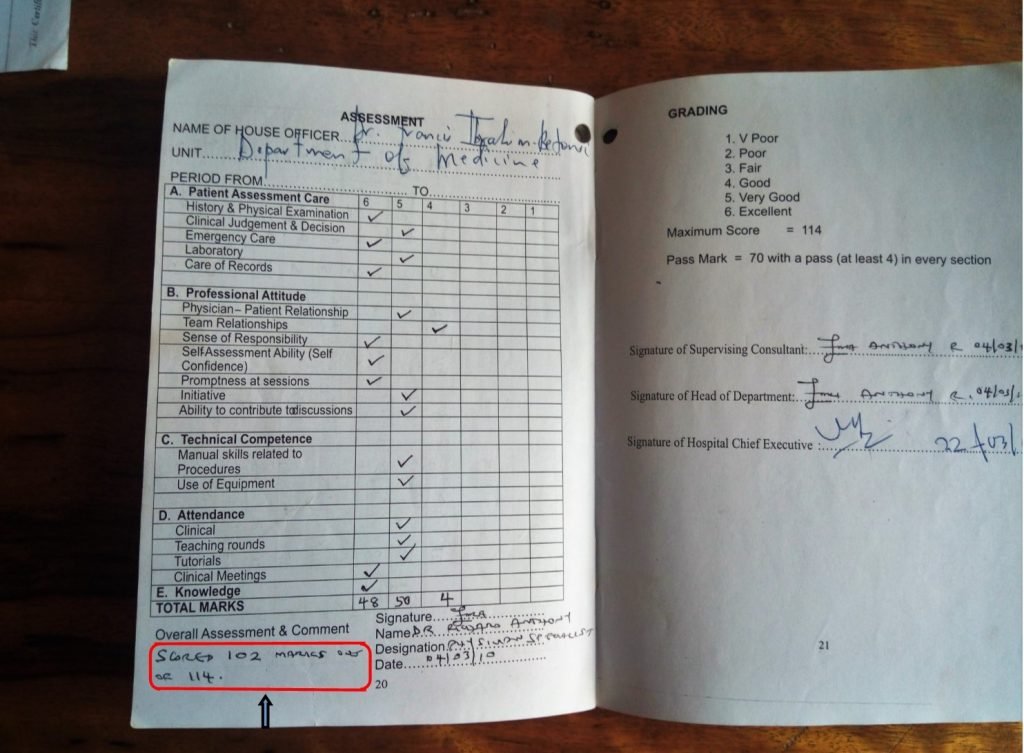 ASSESSMENT
NAME OF HOUSE OFFICER...Dr. Francis Ibrahim
UNIT...Department of Medicine
PERIOD FROM... TO...
A. Patient Assessment Care 6 5 4 3 2 1
History & Physical Examination ✓
Clinical Judgement & Decision ✓
Emergency Care ✓
Laboratory ✓
Care of Records ✓
B. Professional Attitude
Physician– Patient Relationship ✓
Team Relationships ✓
Sense of Responsibility ✓
SelfAssessment Ability (Self
Confidence) ✓
Promptness at sessions ✓
Initiative ✓
Ability to contribute to discussions ✓
C. Technical Competence
Manual skills related to
Procedures ✓
Use of Equipment ✓
D. Attendance
Clinical ✓
Teaching rounds ✓
Tutorials ✓
Clinical Meetings ✓
E. Knowledge ✓
TOTAL MARKS 48 50 4
Overall Assessment & Comment
SCORED 102 MARKS OUT
OF 114.
Signature...
Name DR ANTHONY
Designation PHYSICIAN SPECIALIST
Date...04/03/10
20
GRADING
1. V Poor
2. Poor
3. Fair
4. Good
5. Very Good
6. Excellent
Maximum Score = 114
Pass Mark = 70 with a pass (at least 4) in every section
Signature of Supervising Consultant:... ANTHONY R 04/03/
Signature of Head of Department:... ANTHONY R. 04/03/
Signature of Hospital Chief Executive :... 22/03/
21